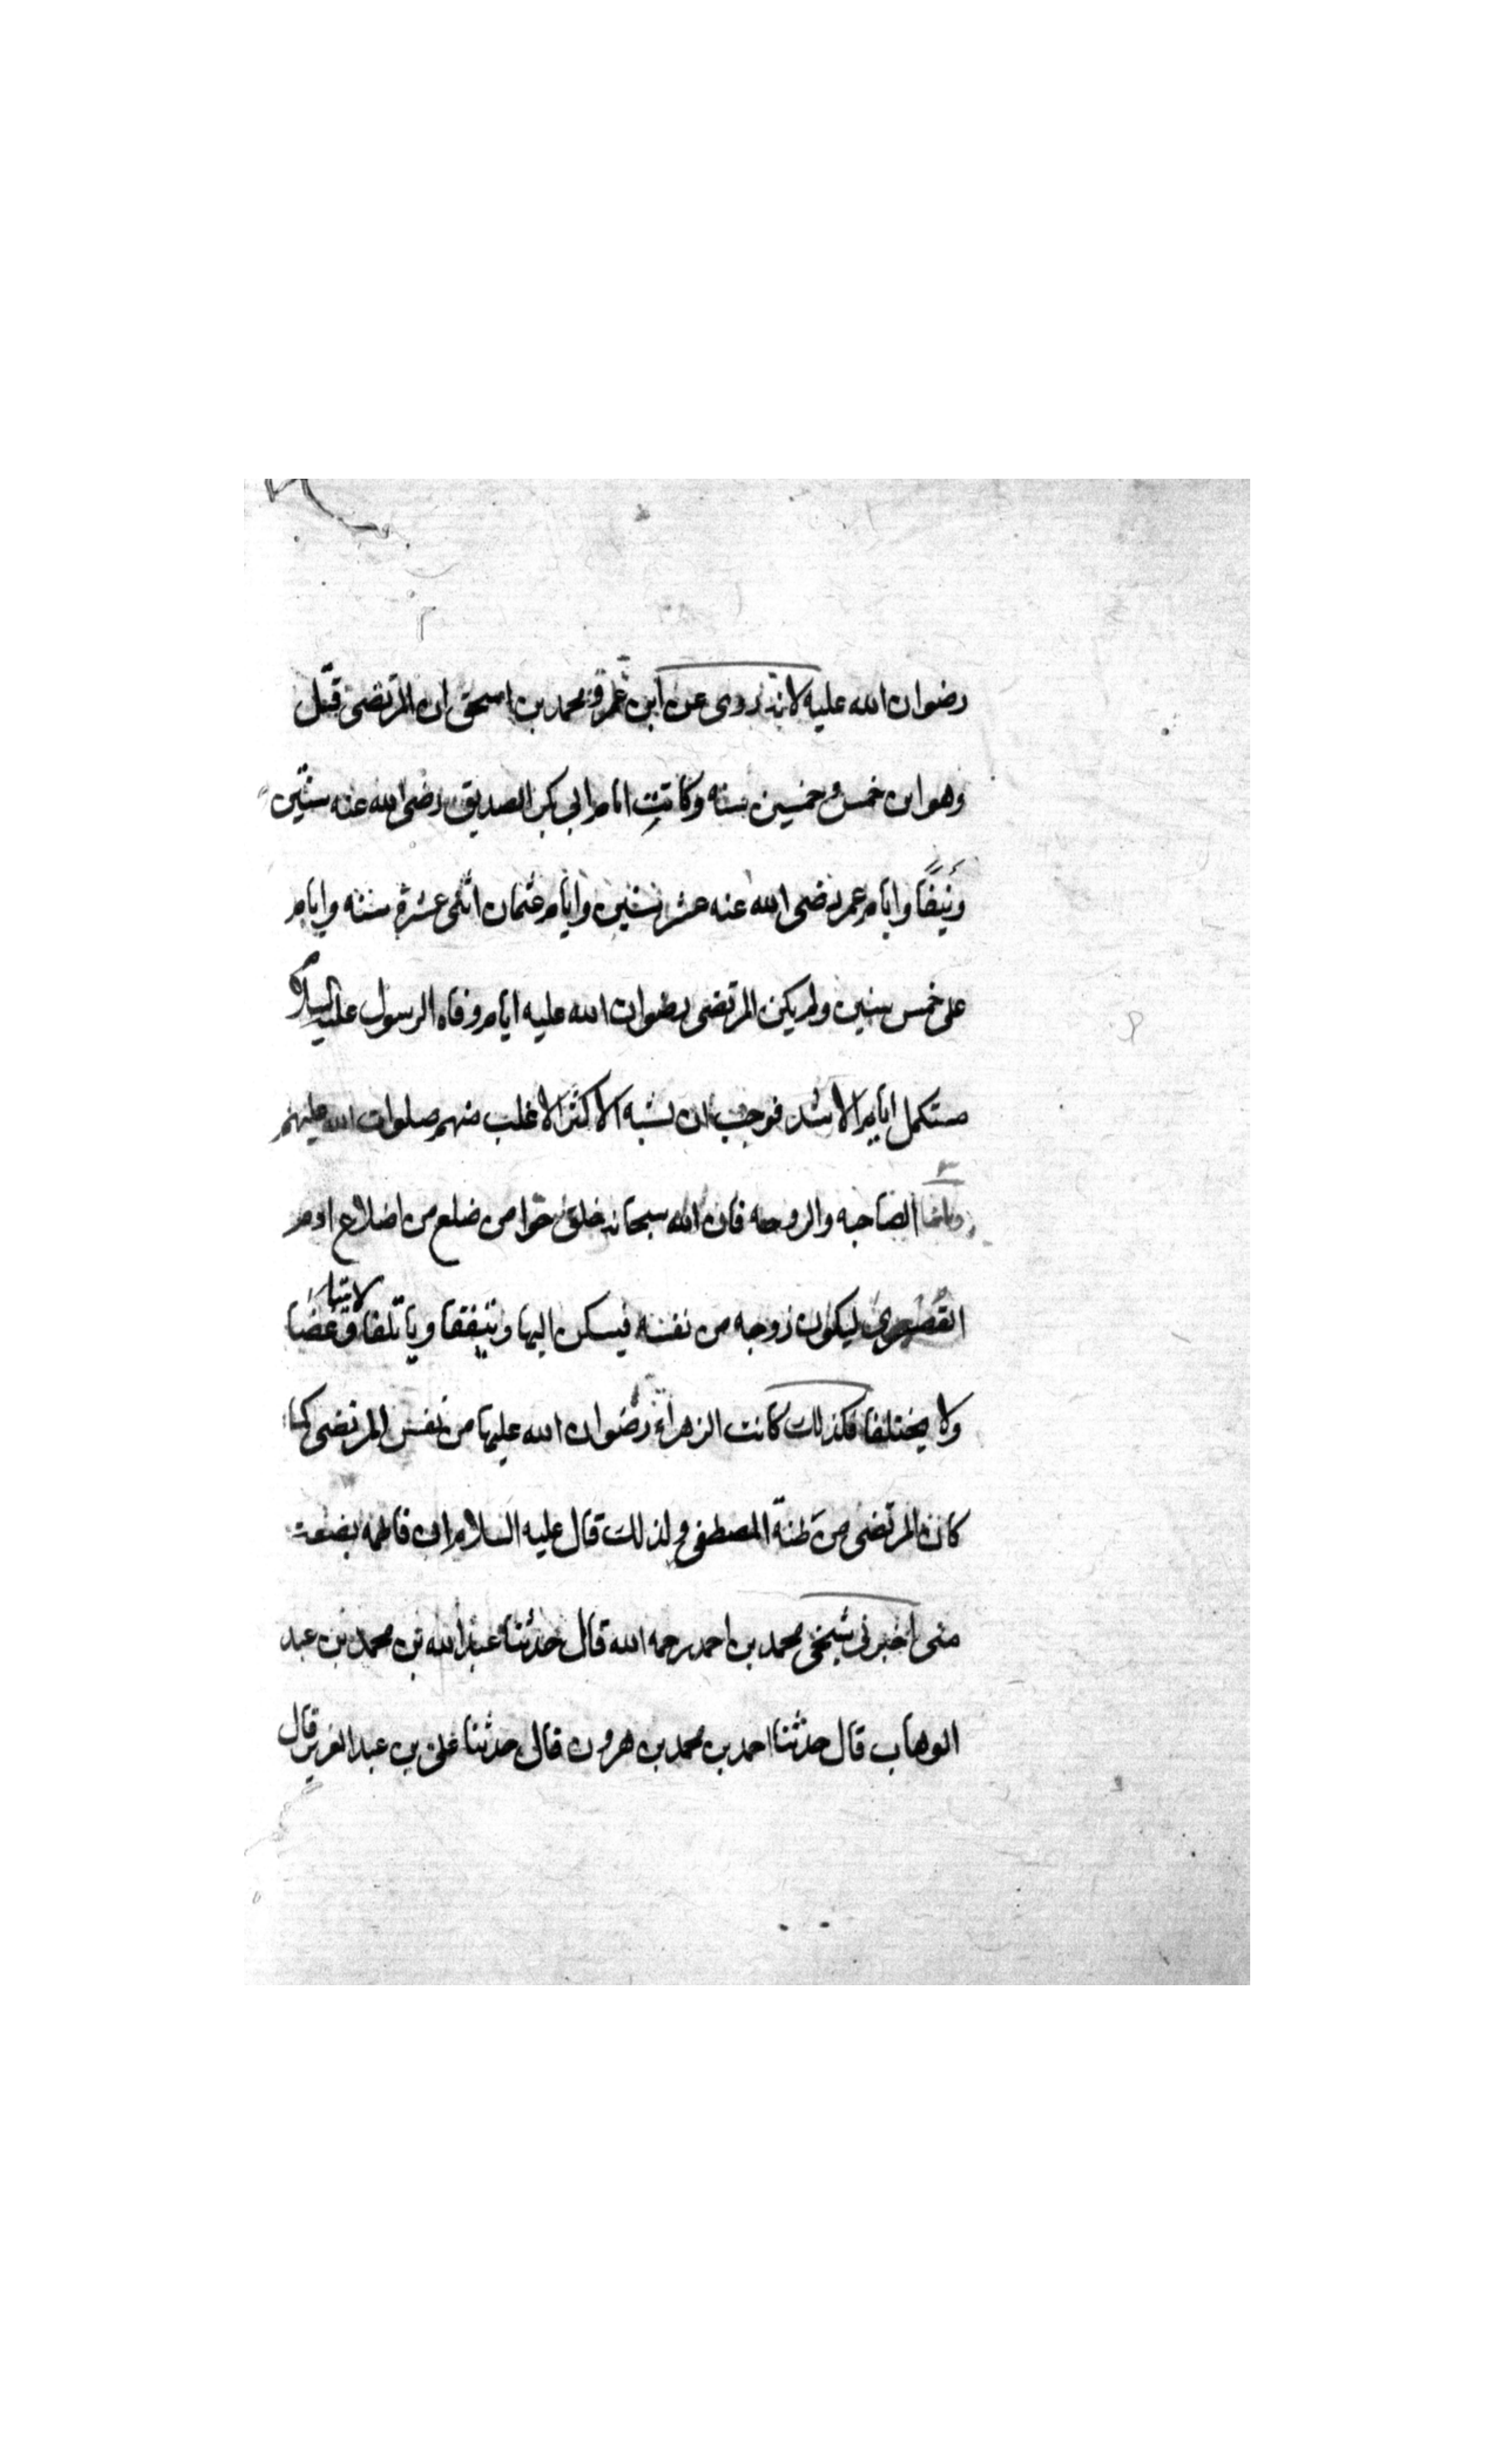 رضوان الله عليه لانه روى عن ابن عمر ومحمد بن اسحق ان المرتضى قتل
وهو ابن خمس وخمسين سنه وكانت ايام ابي بكر الصديق رضى الله عنه سنتين
ونيفًا وايام عمر رضى الله عنه عشر سنين وايام عثمان اثنى عشرة سنه وايام
على خمس سنين ولم يكن المرتضى رضوان الله عليه ايام وفاه الرسول عليه السلام
مستكمل ايام الاشد فوجب ان نشبه الاكثر الاغلب منهم صلوات الله عليهم
واما الصاحبه والزوجه فان الله سبحانه خلق حوا من ضلع من اضلاع ادم
القصيرى ليكون زوجه من نفسه فيسكن اليها ويتفقا وياتلفا لا يتباغضا
ولا يختلفا فكذلك كانت الزهراء رضوان الله عليها من نفس المرتضى كما
كان المرتضى من طينة المصطفى ولذلك قال عليه السلام ان فاطمه بضعة
منى اخبرنى شيخى محمد بن احمد رحمه الله قال حدثنا عبد الله بن محمد بن عبد
الوهاب قال حدثنا احمد بن محمد بن هرون قال حدثنا على بن عبد العزيز قال